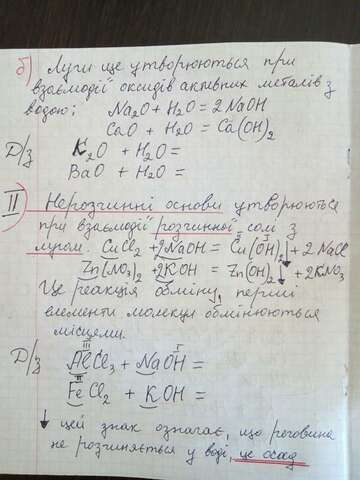 б) Луги ще утворюються при
взаємодії оксидів активних металів з
водою;
Na₂O + H₂O = 2 NaOH
CaO + H₂O = Ca(OH)₂
Д/з K₂O + H₂O =
BaO + H₂O =
II) Нерозчинні основи утворюються
при взаємодії розчинної солі з
лугом. CuCl₂ + 2NaOH = Cu(OH)₂↓ + 2 NaCl
Zn(NO₃)₂ + 2KOH = Zn(OH)₂↓ + 2KNO₃
Це реакція обміну, перші
елементи молекул обмінюються
місцями.
III I
Д/з AlCl₃ + NaOH =
II
FeCl₂ + KOH =
↓ цей знак означає, що речовина
не розчиняється у воді, це осад